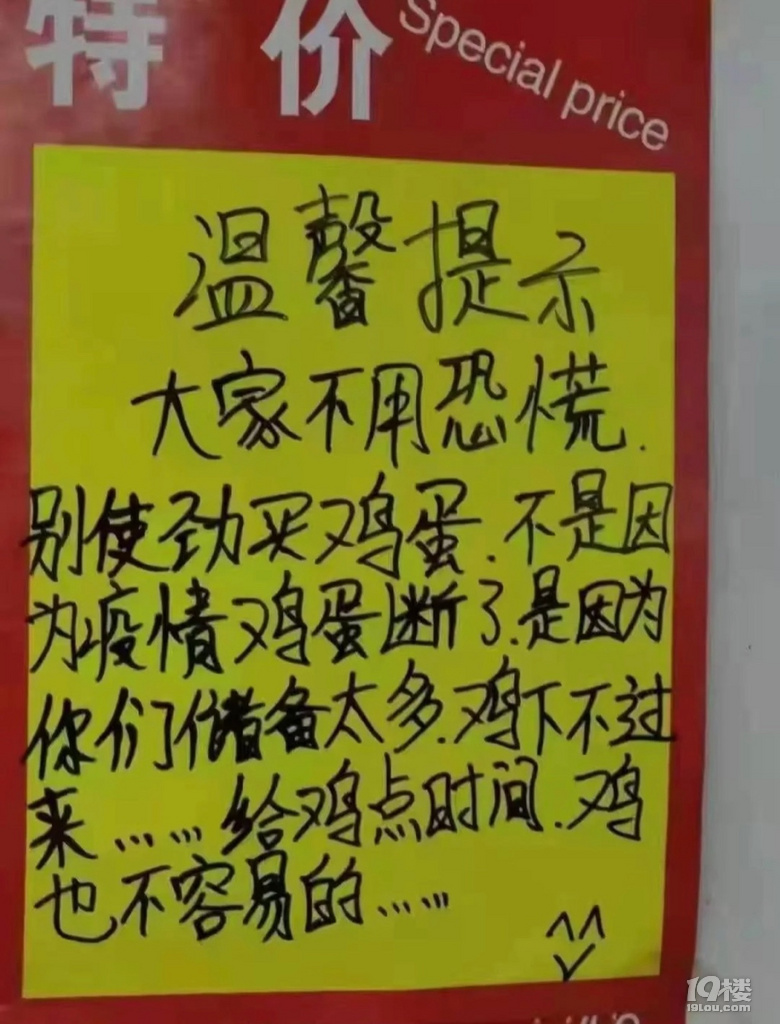 特价
Special price
温馨提示
大家不用恐慌.
别使劲买鸡蛋.不是因
为疫情鸡蛋断了.是因为
你们储备太多.鸡下不过
来……给鸡点时间.鸡
也不容易的……
19楼
19lou.com